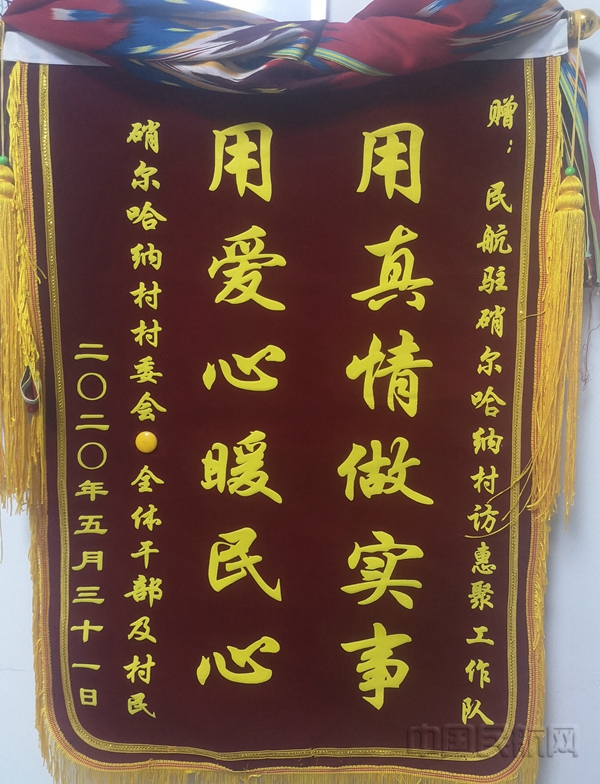 赠：民航驻硝尔哈纳村访惠聚工作队
用真情做实事
用爱心暖民心
硝尔哈纳村村委会●全体干部及村民
二〇二〇年五月三十一日
中国民航网